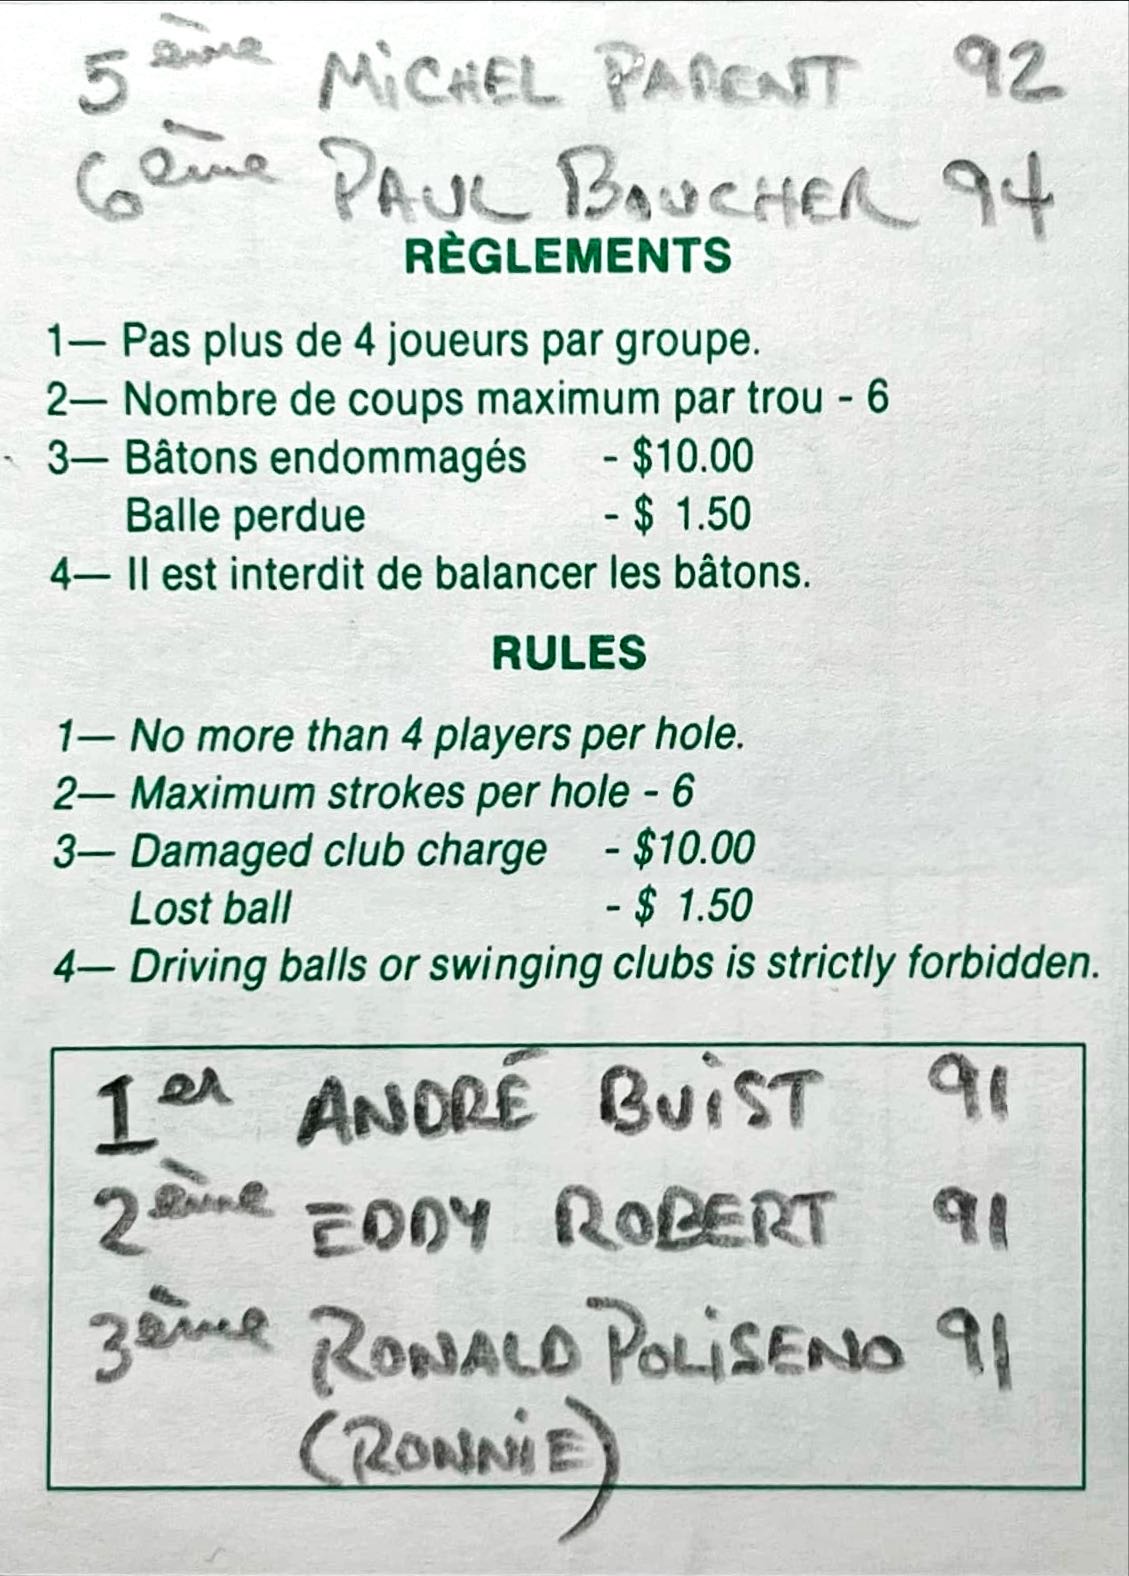 5ème MiCHEL PARENT 92
6ème PAUL BOUCHER 94
RÈGLEMENTS
1— Pas plus de 4 joueurs par groupe.
2— Nombre de coups maximum par trou - 6
3— Bâtons endommagés - $10.00
Balle perdue - $ 1.50
4— Il est interdit de balancer les bâtons.
RULES
1— No more than 4 players per hole.
2— Maximum strokes per hole - 6
3— Damaged club charge - $10.00
Lost ball - $ 1.50
4— Driving balls or swinging clubs is strictly forbidden.
1er ANDRÉ BUiST 91
2ème EDDY ROBERT 91
3ème RONALD POLiSENO 91
(RONNiE)